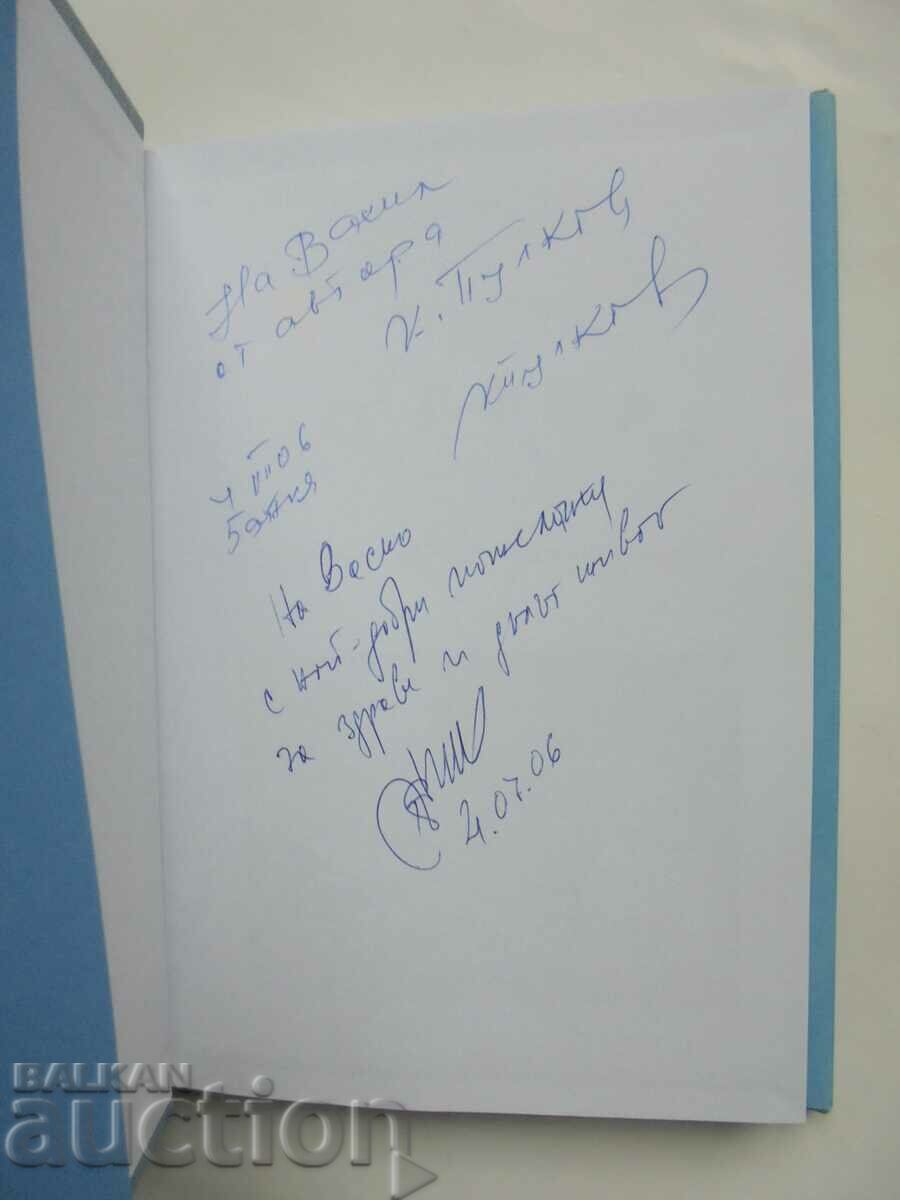 На Васил
от автора
К. Пулков
КПулков
4 III 06
Банкя
На Васко
с най-добри пожелания
за здраве и дълъг живот
4.03.06
BALKAN
auction